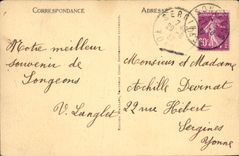 CORRESPONDANCE
ADRESSE
Notre meilleur
souvenir de
Songeons
V. Langlet
Monsieur et Madame
Achille
22 rue Hébert
Sergines
Yonne